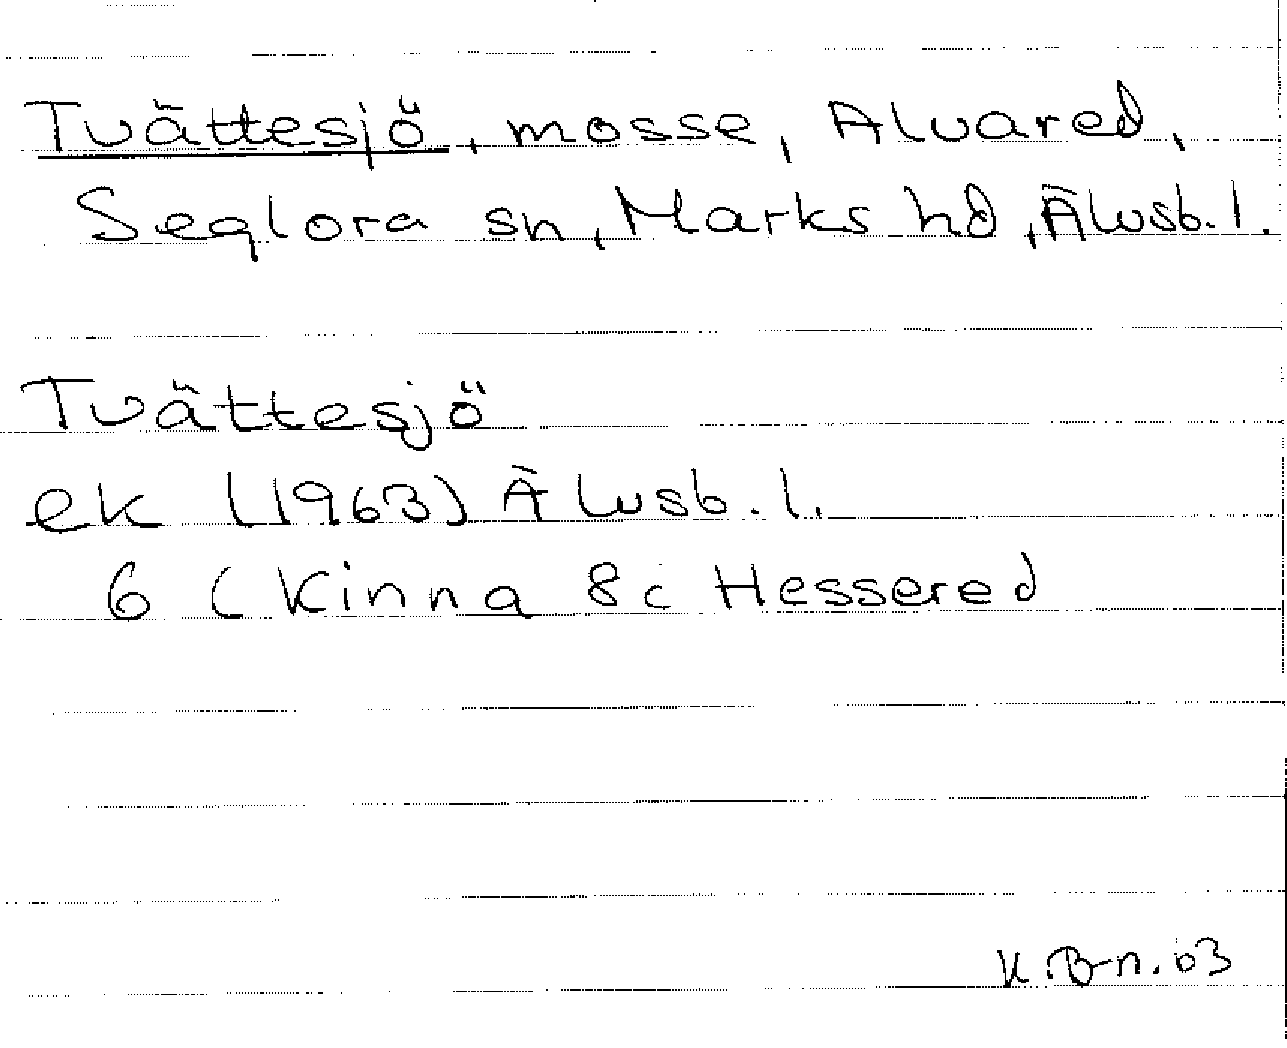 Tvättesjö, mosse, Alvared,
Seglora sn, Marks hd, Älvsb. l.
Tvättesjö
ek (1963) Älvsb. l.
6 ( Kinna 8c Hessered
K. B-n. 03